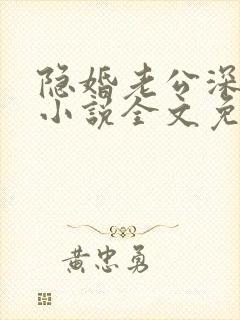 隐婚老公深
小说全文免
黄忠勇